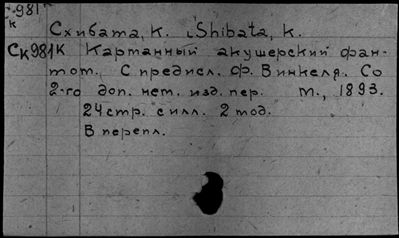 981
к
Схибата, К. Shibata, K.
Ск981к Картанный акушерский фан-
том. С предисл. Ф. Винкеля. Со
2-го доп. нем. изд. пер. М., 1893.
24 стр. с илл. 2 mod.
В перепл.